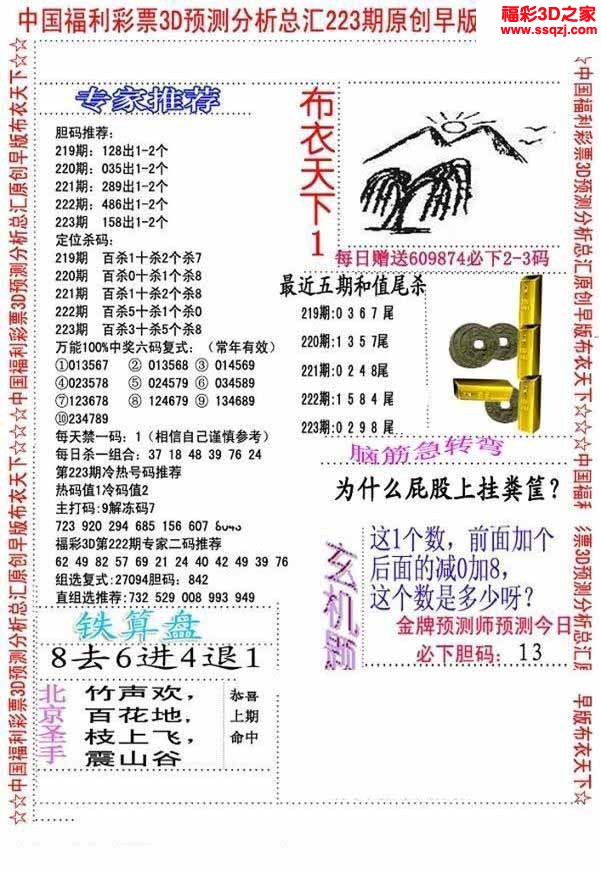 中国福利彩票3D预测分析总汇223期原创早版
福彩3D之家
www.ssqzj.com
☆☆中国福利彩票3D预测分析总汇原创早版布衣天下☆☆中国福利彩票3D预测分析总汇原创早版布衣天下☆☆
专家推荐
胆码推荐:
219期: 128出1-2个
220期: 035出1-2个
221期: 289出1-2个
222期: 486出1-2个
223期 158出1-2个
定位杀码:
219期 百杀1十杀2个杀7
220期 百杀0十杀1个杀8
221期 百杀1十杀2个杀8
222期 百杀5十杀1个杀0
223期 百杀3十杀5个杀8
万能100%中奖六码复式: (常年有效)
①013567 ② 013568 ③ 014569
④023578 ⑤ 024579 ⑥ 034589
⑦123678 ⑧ 124679 ⑨ 134689
⑩234789
每天禁一码: 1 (相信自己谨慎参考)
每日杀一组合: 37 18 48 39 76 24
第223期冷热号码推荐
热码值1冷码值2
主打码: 9解冻码7
723 920 294 685 156 607
福彩3D第222期专家二码推荐
62 49 82 57 69 21 24 40 42 49 39 76
组选复式:27094胆码: 842
直组选推荐:732 529 008 993 949
铁算盘
8去6进4退1
北京圣手
竹声欢,
百花地,
枝上飞,
震山谷
恭喜
上期
命中
布衣天下1
每日赠送609874必下2-3码
最近五期和值尾杀
219期:0 3 6 7 尾
220期:1 3 5 7 尾
221期:0 2 4 8 尾
222期:1 5 8 4 尾
223期:0 2 9 8 尾
脑筋急转弯
为什么屁股上挂粪筐?
玄机题
这1个数, 前面加个
后面的减0加8,
这个数是多少呀?
金牌预测师预测今日
必下胆码: 13
☆中国福利彩票3D预测分析总汇原创早版布衣天下☆☆中国福利
彩票3D预测分析总汇原
早版布衣天下☆